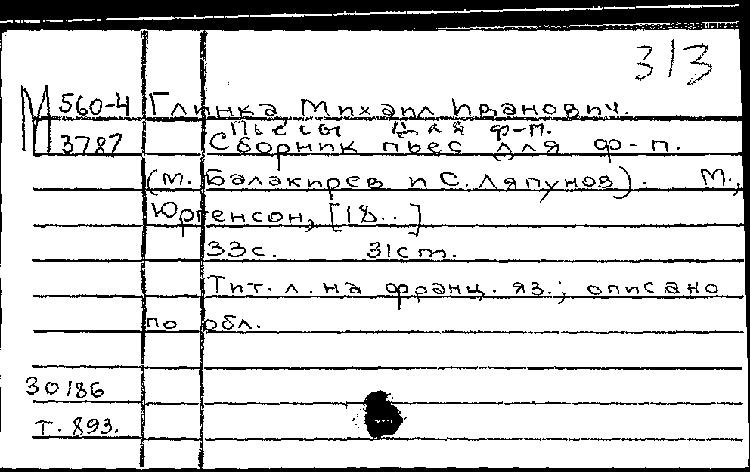 313
М 560-4 Глинка Михаил Иванович.
Пьесы для ф-п.
3787 Сборник пьес для ф-п.
(М. Балакирев и С. Ляпунов). М.,
Юргенсон, [18..]
33с. 31cm.
Тит. л. на франц. яз.; описано
по обл.
30186
Т. 893.